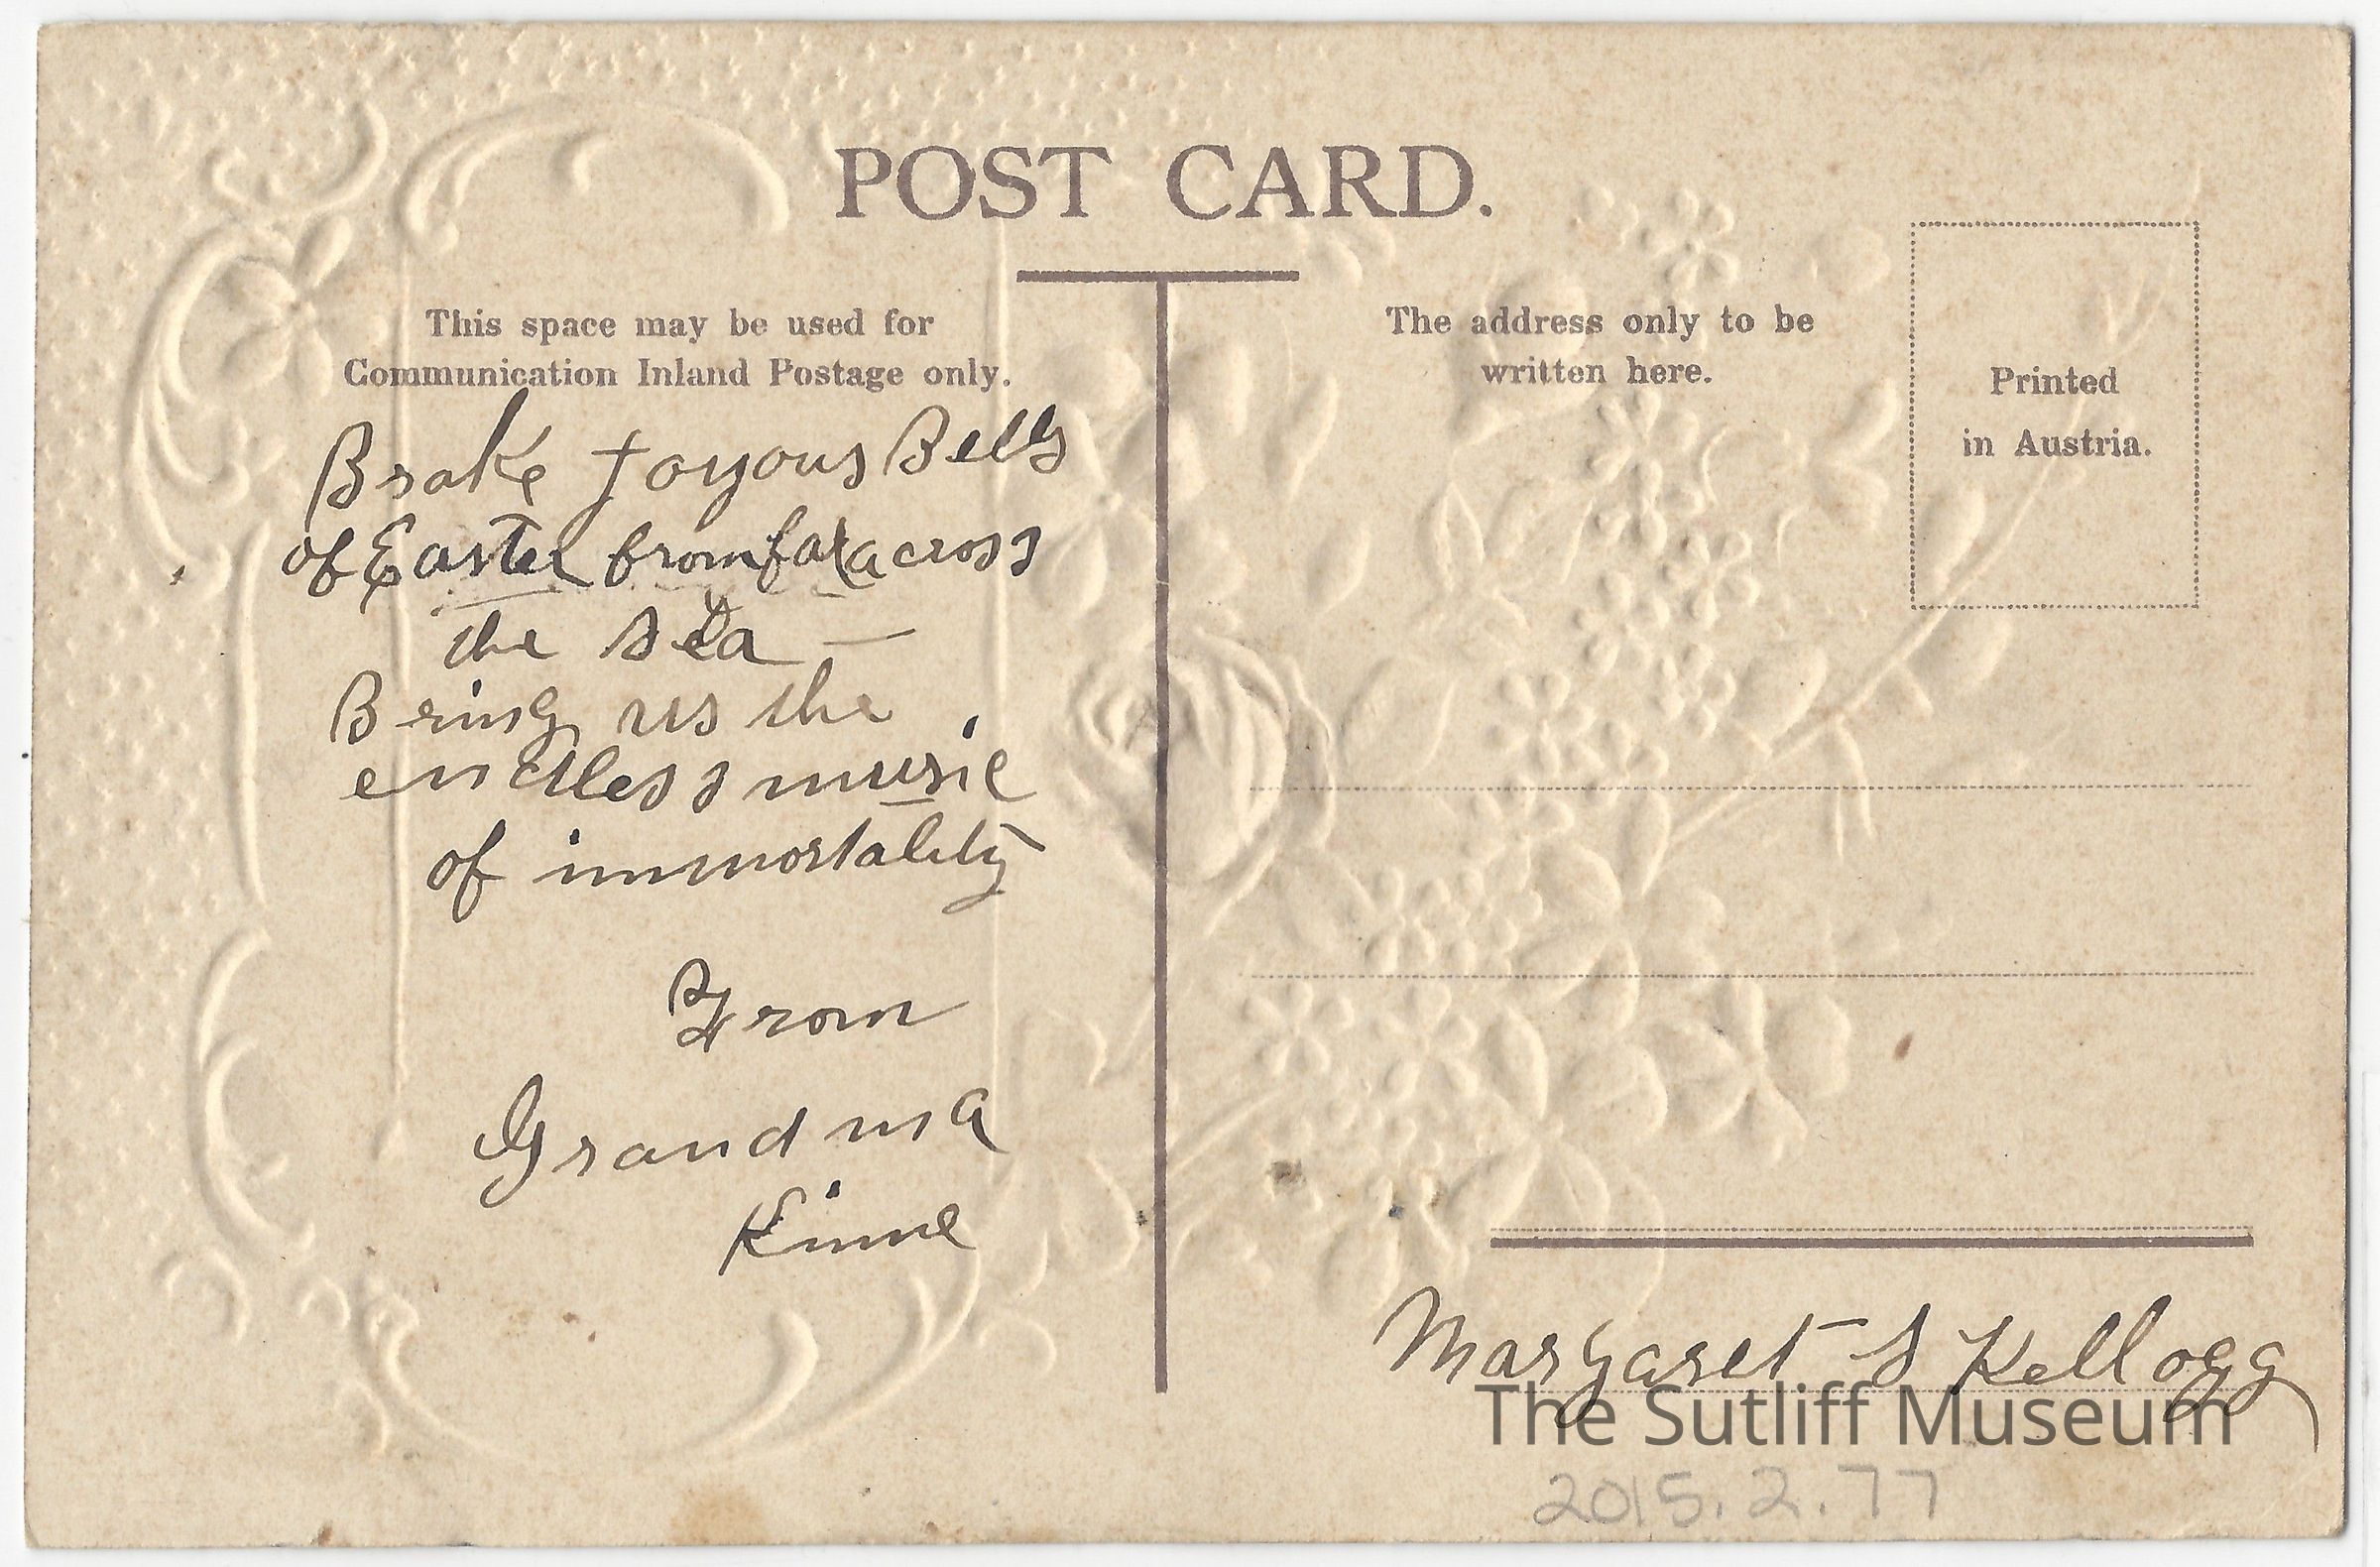 POST CARD.
This space may be used for
Communication Inland Postage only.
The address only to be
written here.
Printed
in Austria.
Brake Joyous Bells
of Easter from far across
the sea —
Bring us the
endless music
of immortality
From
Grandma
Kinne
Margaret S Kellogg
The Sutliff Museum
2015.2.77